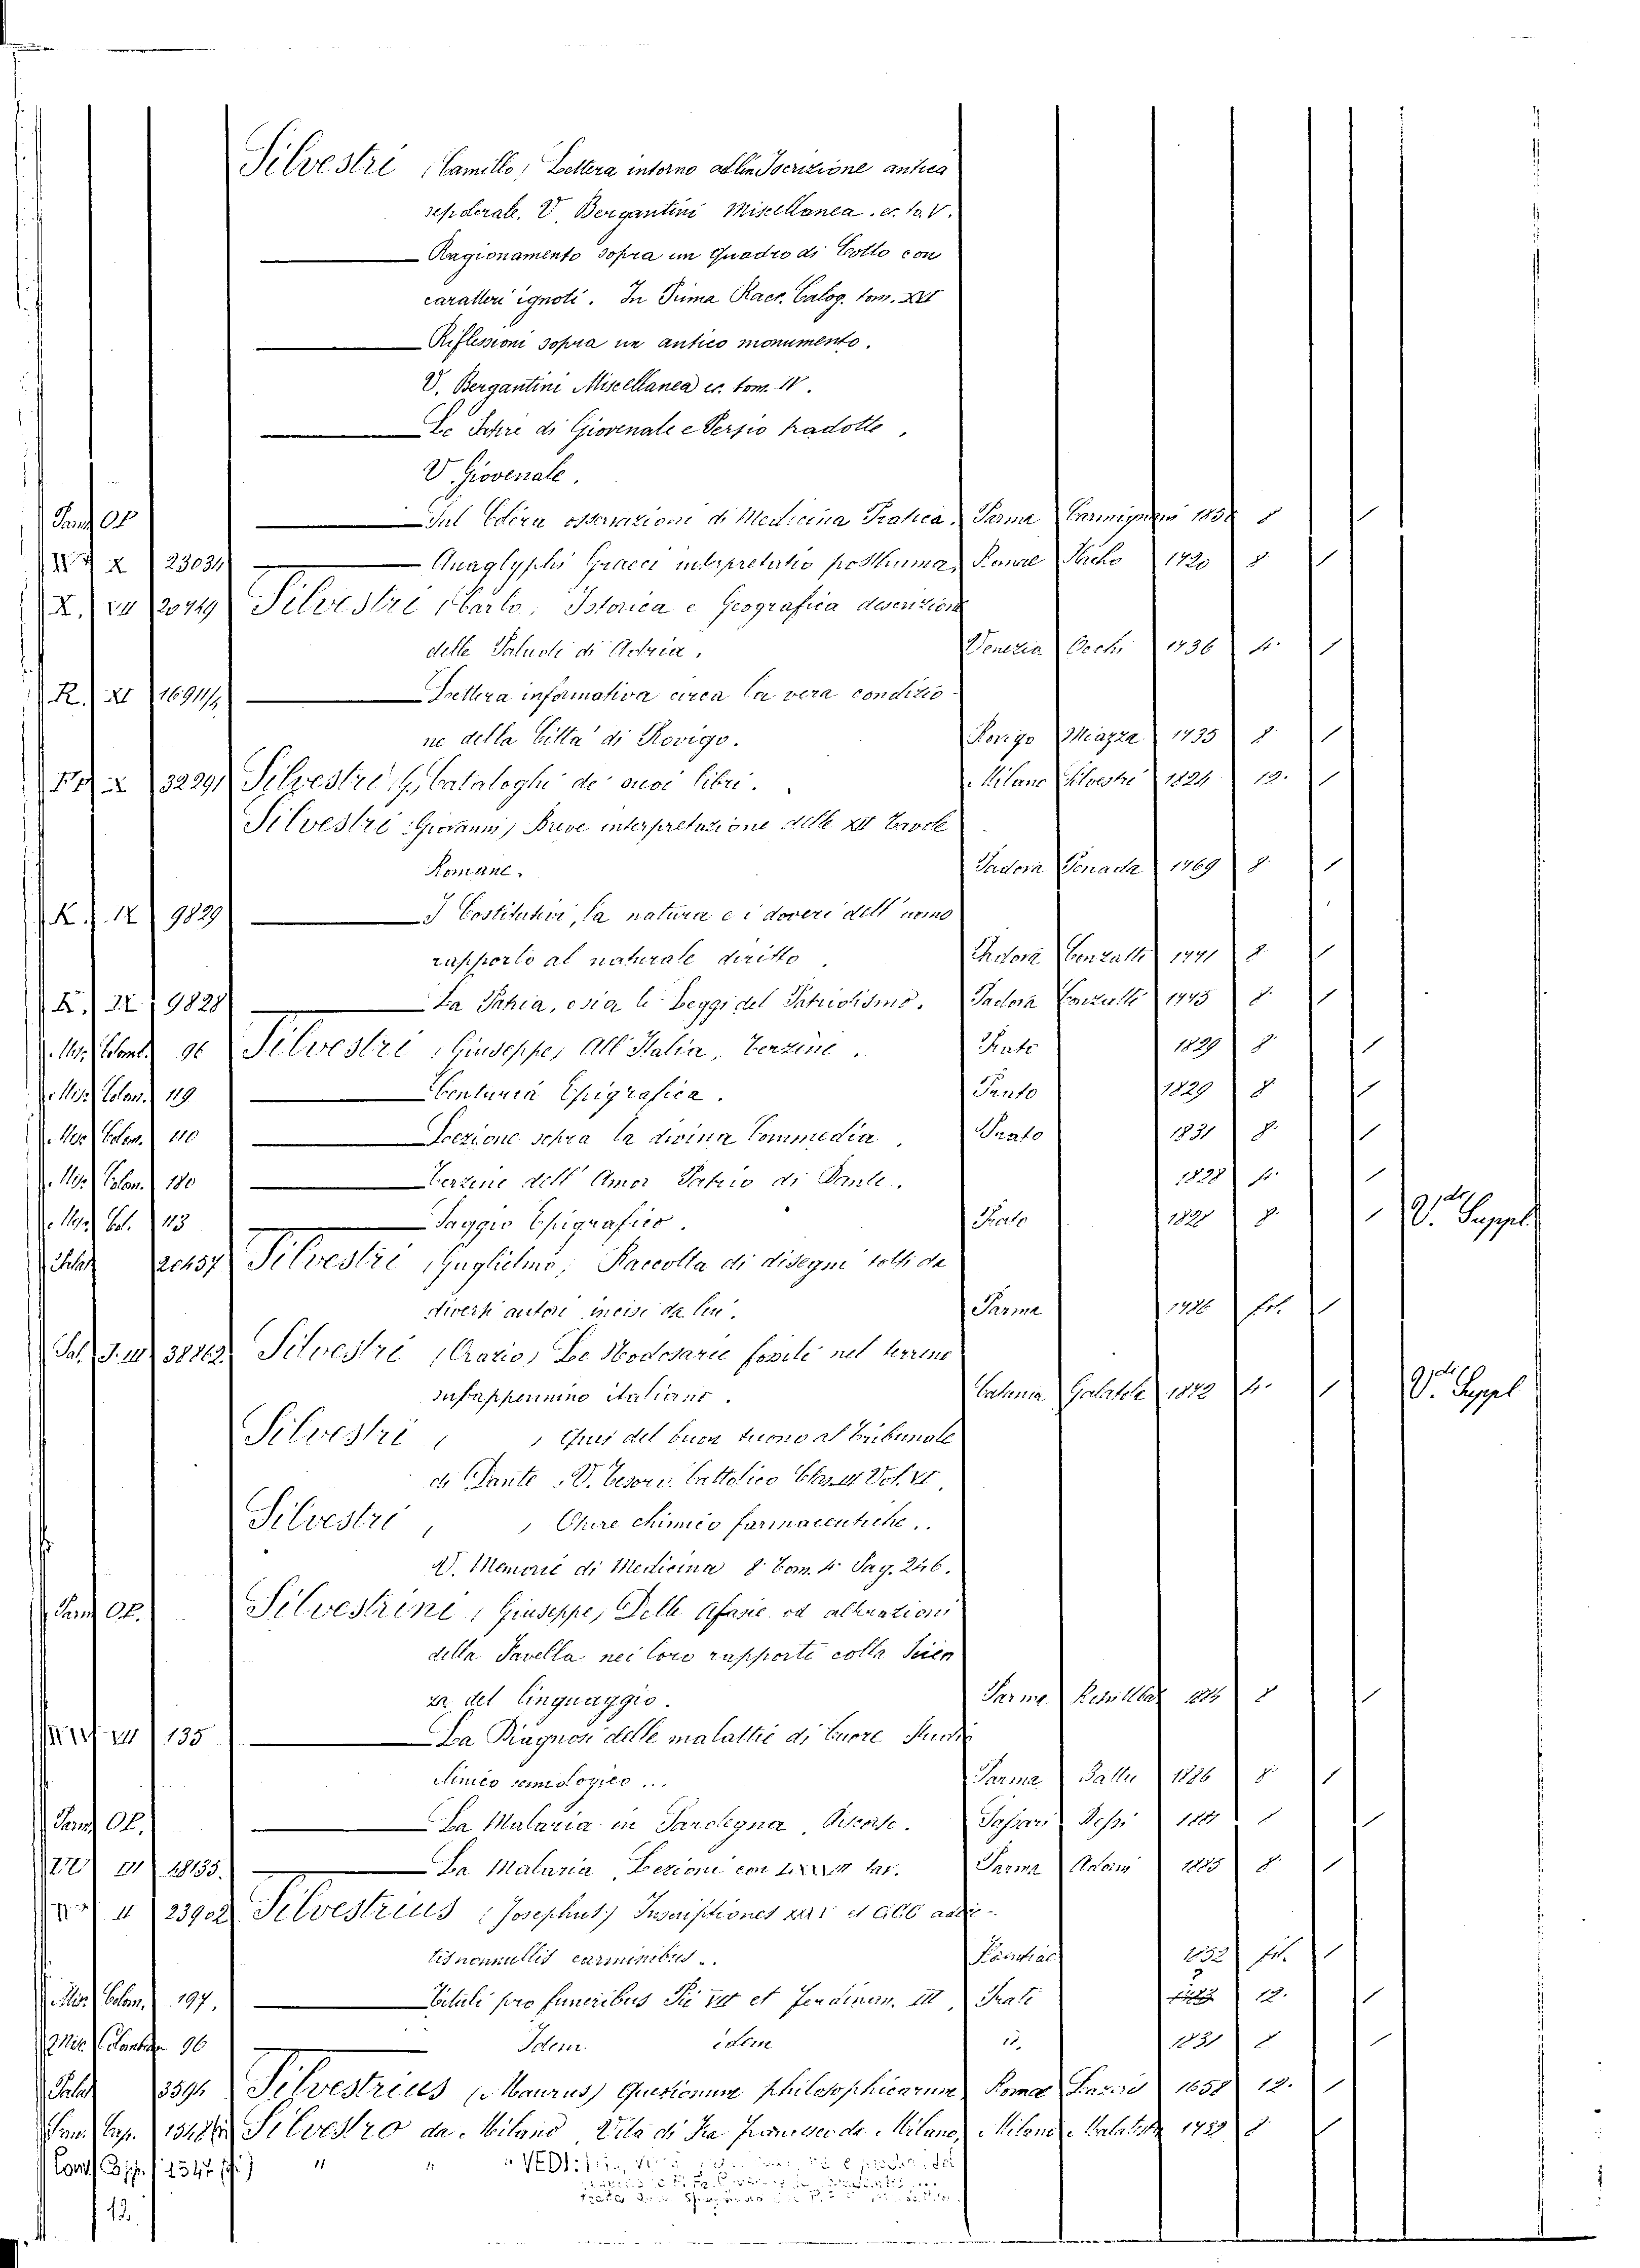 Silvestri (Camillo) Lettera intorno all'Inscrizione antica
sepolcrale. V. Bergantini Miscellanea. ec. to. V.
Ragionamento sopra un Quadro di Cotto con
caratteri ignoti. In Prima Racc. Calog. tom. XVI
Riflessioni sopra un antico monumento.
V. Bergantini Miscellanea ec. tom. IV.
Le Satire di Giovenale e Persio tradotte,
V. Giovenale.
Pam Op Sul Edera osservazioni di Medicina Pratica. Parma Carmignani 1858 8 1
23034 Anaglyphi Graeci interpretatio posthuma, Romae 1720 8 1
X. 20449 Silvestri (Carlo) Istorica e Geografica descrizione
delle Paludi di Adria. Venezia Occhi 1736 4. 1
R. XI 16911/4 Lettera informativa circa la vera conditio-
ne della Città di Rovigo. Rovigo Miazza 1735 8. 1
32291 Silvestri G. Cataloghi de' suoi libri. Milano Silvestri 1824 12. 1
Silvestri (Giovanni) Breve interpretazione delle XII Tavole
Romane. Padova Penada 1769 8. 1
K. IX 9829 I Costitutivi, la natura e i doveri dell'uomo
rapporto al naturale diritto. Padova Conzatti 1771 8 1
9828 La Patria, o sia le Leggi del Patriotismo. Padova Conzatti 1775 8. 1
Misc. Colomb. 96 Silvestri (Giuseppe) All'Italia, Terzine. Prato 1829 8. 1
Misc. Colom. 119 Centuria Epigrafica. Prato 1829 8 1
Misc. Colom. 110 Lezione sopra la divina Commedia. Prato 1831 8. 1
Misc. Colom. 180 Terzine dell'Amor Patrio di Dante. 1828 1
Misc. Col. 113 Saggio Epigrafico. Prato 1828 8. 1 V.di Suppl.
20457 Silvestri (Guglielmo) Raccolta di disegni tolti da
diversi autori incisi da lui. Parma 1786 fol. 1
Pal. 38862 Silvestri (Orazio) Le Nodosarie fossili nel terreno
subappennino italiano. Catania Galatola 1872 4. 1 V.di Suppl
Silvestri ( ) del buon tuono al Tribunale
di Dante. V. Tesoro Cattolico Vol. VI
Silvestri ( ) Opere chimico farmaceutiche..
V. Memorie di Medicina 8. Tom. 4. Pag. 246.
Pam Op. Silvestrini (Giuseppe) Delle Afasie od alterazioni
della Favella nei loro rapporti colla Scien
za del linguaggio. Parma 8 1
135 La Diagnosi delle malattie di Cuore Studio
clinico semiologico... Parma Battei 1886 8 1
Pam Op. La Malaria in Sardegna, Discorso. Sassari Dessi 1881 8 1
III 48135. La Malaria, Lezioni con tav. Parma Adorni 1885 8. 1
II 23902 Silvestrius (Josephus) Inscriptiones
tis nonnullis carminibus.. 1852 fol. 1
Misc. Colom. 197, Tituli pro funeribus Pii VII et Ferdinan. III, Prati 12. 1
Misc. Colomb. 96 Idem idem id. 1831 8 1
Palat 3594 Silvestrius (Maurus) Questionum philosophicarum Roma 1658 12. 1
Silvestro da Milano, Vita di Fra Francesco da Milano, Milano Malatesta 1752 8. 1
" " " VEDI:
12.